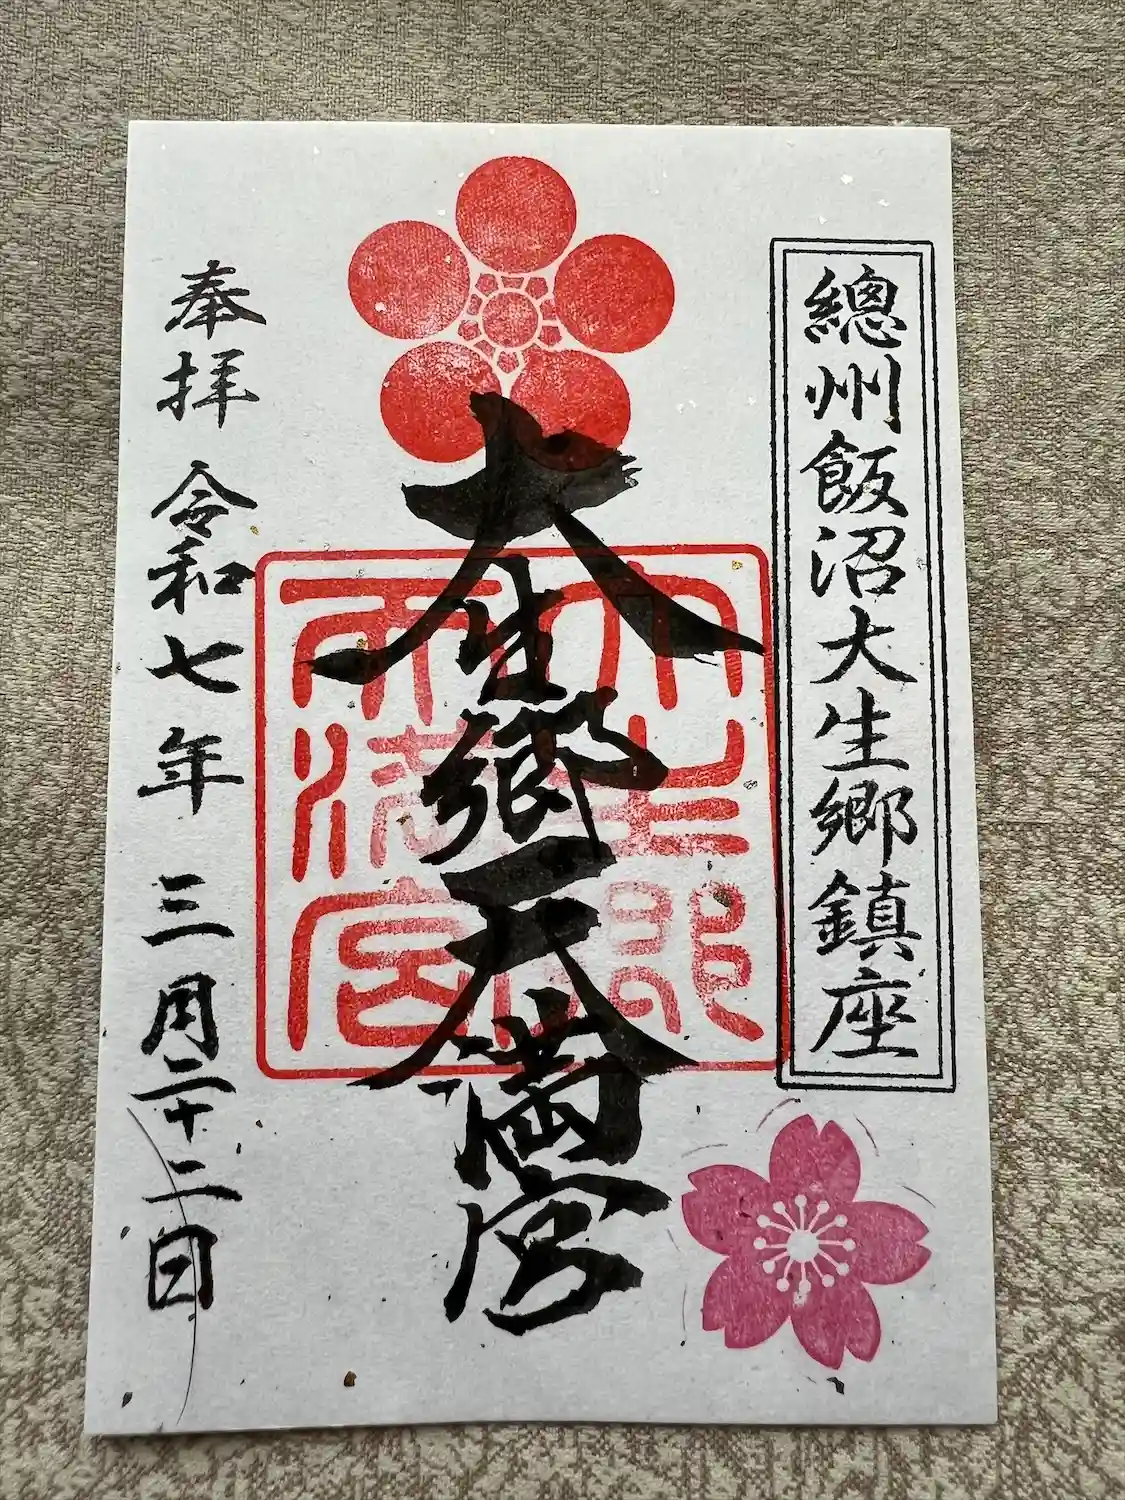 總州飯沼大生郷鎮座
大生郷天満宮
大生郷
天満宮
奉拝 令和七年 三月二十二日